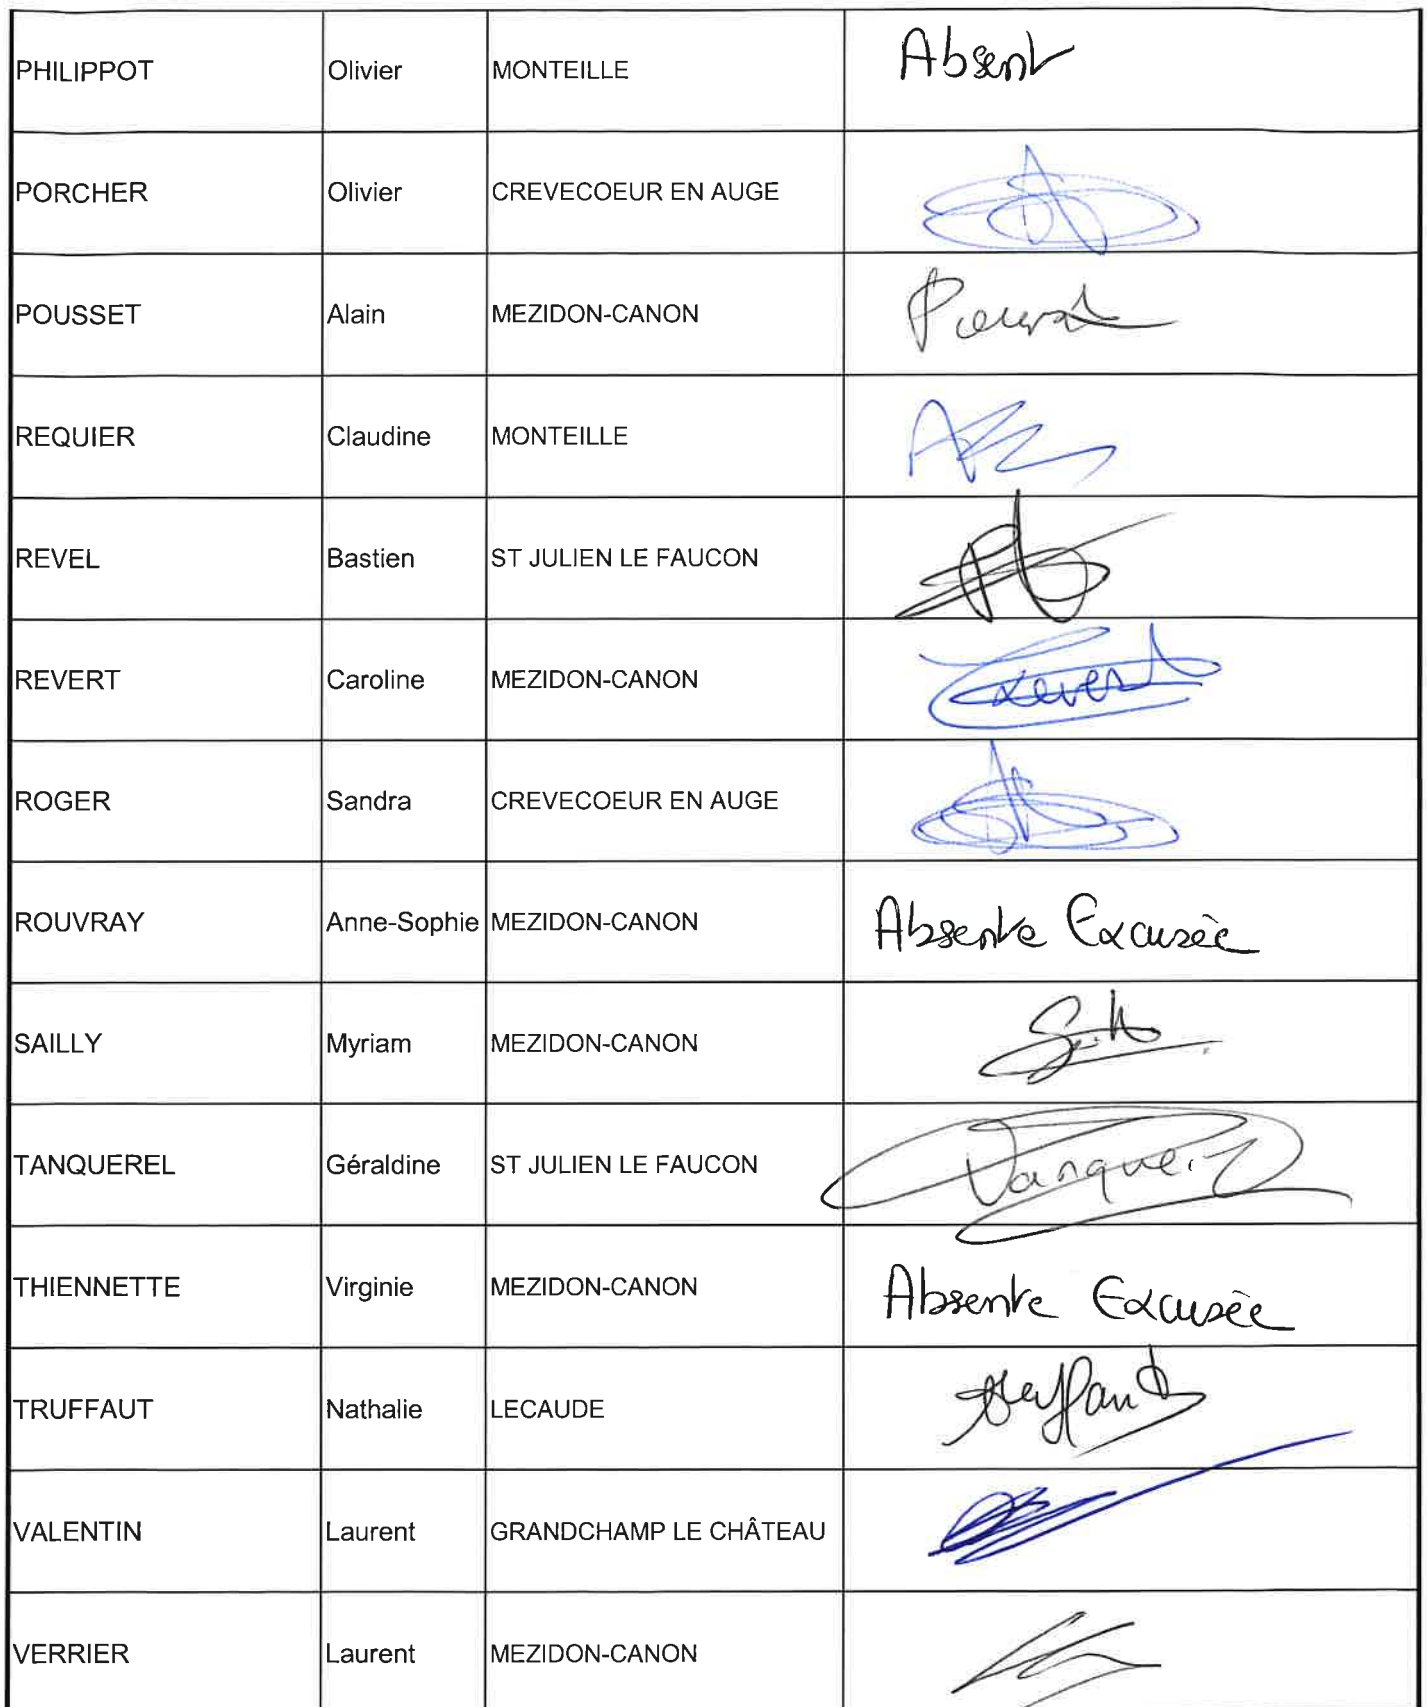 PHILIPPOT Olivier MONTEILLE Absent
PORCHER Olivier CREVECOEUR EN AUGE
POUSSET Alain MEZIDON-CANON
REQUIER Claudine MONTEILLE
REVEL Bastien ST JULIEN LE FAUCON
REVERT Caroline MEZIDON-CANON Revert
ROGER Sandra CREVECOEUR EN AUGE
ROUVRAY Anne-Sophie MEZIDON-CANON Absente Excusée
SAILLY Myriam MEZIDON-CANON
TANQUEREL Géraldine ST JULIEN LE FAUCON
THIENNETTE Virginie MEZIDON-CANON Absente Excusée
TRUFFAUT Nathalie LECAUDE
VALENTIN Laurent GRANDCHAMP LE CHÂTEAU
VERRIER Laurent MEZIDON-CANON